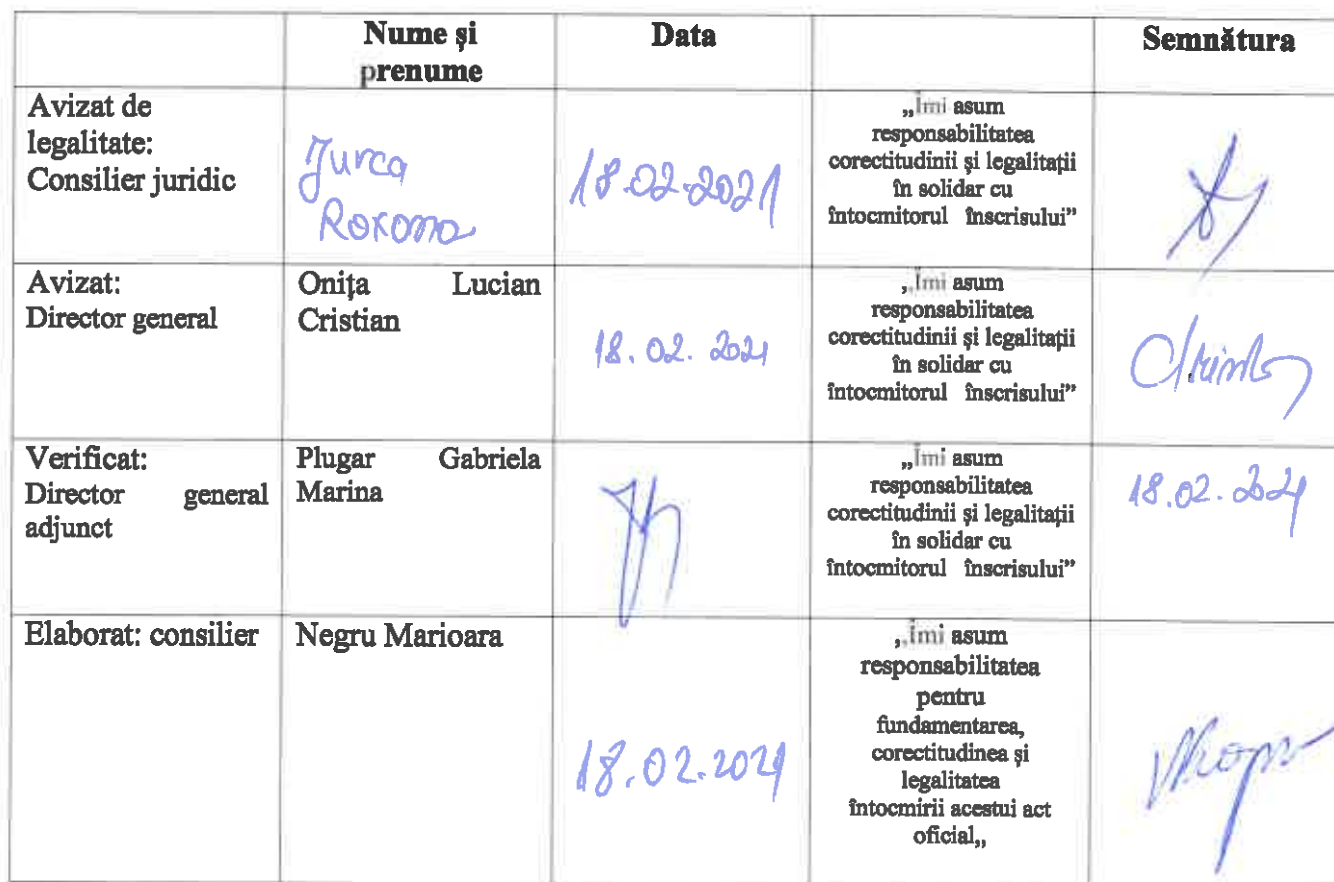 Nume și
prenume
Data
Semnătura
Avizat de
legalitate:
Consilier juridic
Jurca
Roxana
18.02.2021
„Îmi asum
responsabilitatea
corectitudinii și legalitații
în solidar cu
întocmitorul înscrisului”
Avizat:
Director general
Onița Lucian
Cristian
18.02.2021
„Îmi asum
responsabilitatea
corectitudinii și legalitații
în solidar cu
întocmitorul înscrisului”
Verificat:
Director general
adjunct
Plugar Gabriela
Marina
„Îmi asum
responsabilitatea
corectitudinii și legalitații
în solidar cu
întocmitorul înscrisului”
18.02.2021
Elaborat: consilier
Negru Marioara
18.02.2021
„Îmi asum
responsabilitatea
pentru
fundamentarea,
corectitudinea și
legalitatea
întocmirii acestui act
oficial„